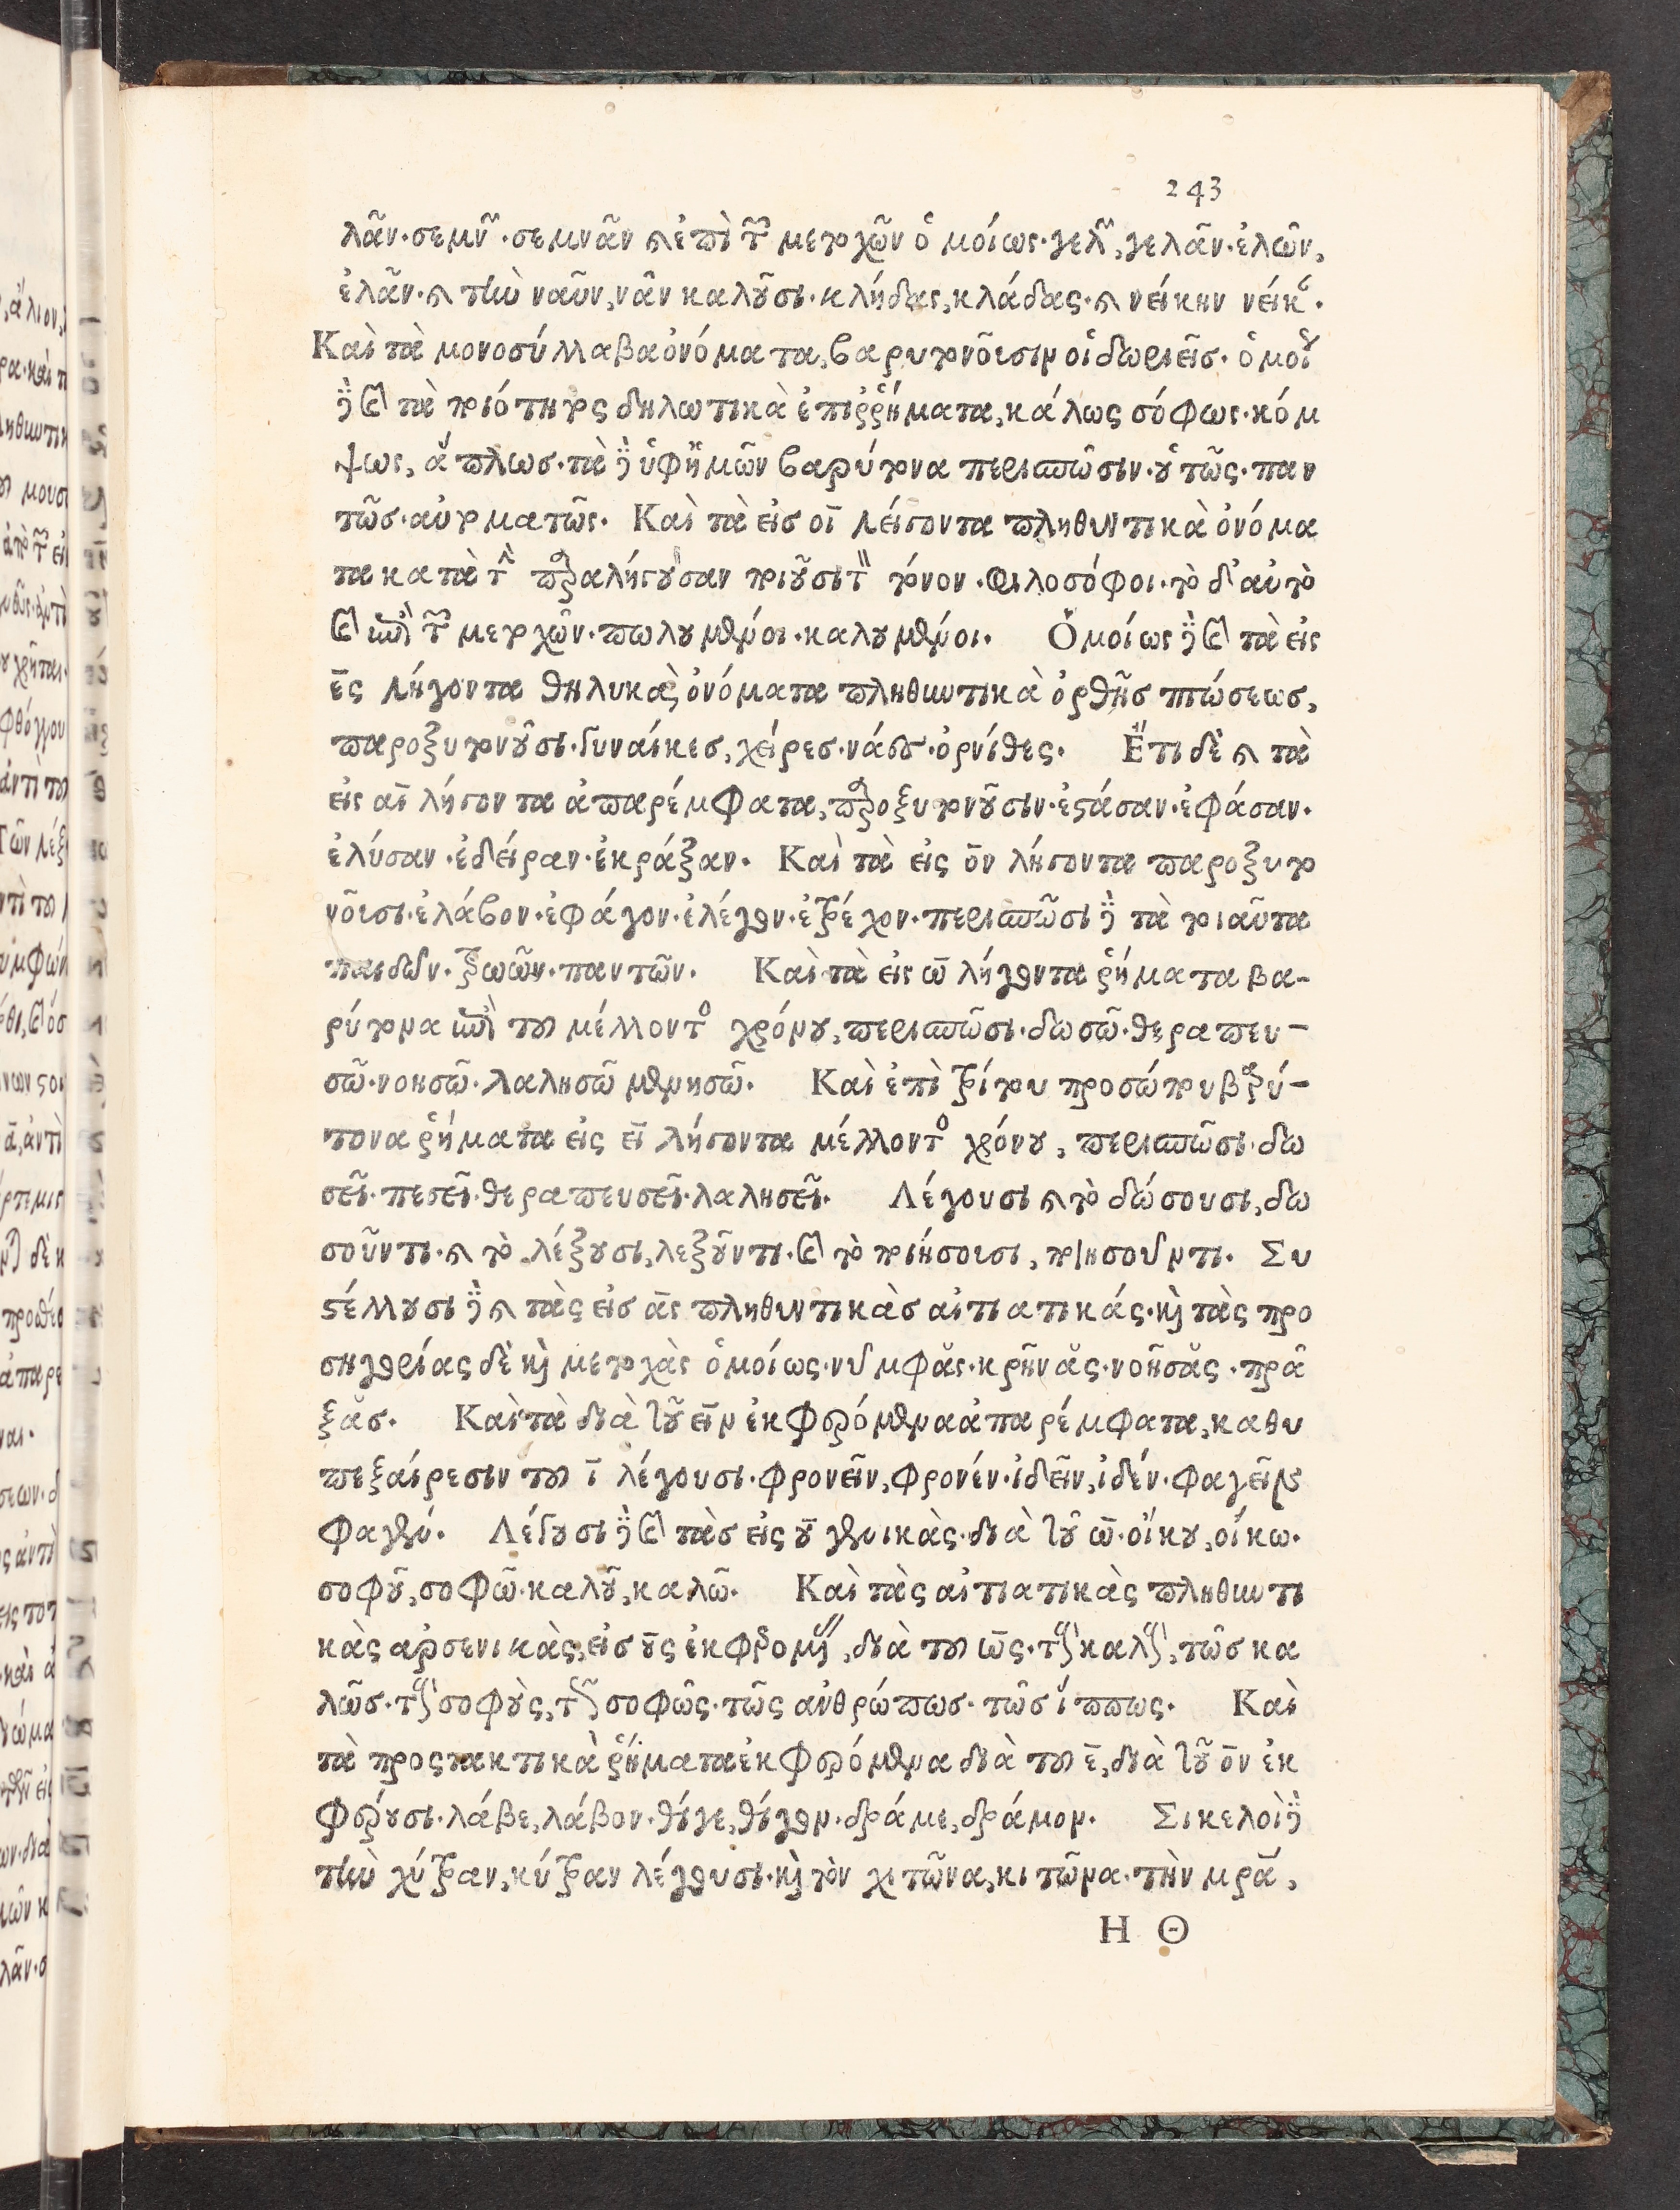 243
λᾶν·σεμνῶν·σεμνᾶν καὶ ἐπὶ τῶν μετοχῶν ὁμοίως·γελῶν, γελᾶν·ἐλῶν,
ἐλᾶν·καὶ τὴν ναῦν, νᾶν καλοῦσι·κλῆδας, κλάδας·καὶ νείκην νείκας.
Καὶ τὰ μονοσύλλαβα ὀνόματα, βαρυτονοῦσιν οἱ δωριεῖς· ὁμοίως
δὲ καὶ τὰ ποιότητος δηλωτικὰ ἐπιῤῥήματα, κάλως σόφως·κόμ
ψως, ἅπλωσ·τὰ δὲ ὑφ' ἡμῶν βαρύτονα περισπῶσιν·οὑτῶς·παν
τῶσ·αὐτοματῶς. Καὶ τὰ εἰσ οῑ λήγοντα πληθυντικὰ ὀνόμα
τα κατὰ τὴν παραλήγουσαν ποιοῦσι τὸν τόνον·φιλοσόφοι·τὸ δ' αὐτὸ
καὶ ἐπὶ τῶν μετοχῶν·πωλουμένοι·καλουμένοι. Ὁμοίως δὲ καὶ τὰ εἰς
ε̄ς λήγοντα θηλυκὰ ὀνόματα πληθυντικὰ ὀρθῆσ πτώσεωσ,
παροξυτονοῦσι·γυναίκεσ, χείρεσ·νάες·ὀρνίθες. Ἔτι δὲ καὶ τὰ
εἰς αῑ λήγοντα ἀπαρέμφατα, παροξυτονοῦσιν·ἐστάσαν·ἐφάσαν·
ἐλύσαν·ἐδείραν·ἐκράξαν. Καὶ τὰ εἰς ο̄ν λήγοντα παροξυτο
νοῦσι·ἐλάβον·ἐφάγον·ἐλέγον·ἐτρέχον·περισπῶσι δὲ τὰ τοιαῦτα
παιδῶν·τρωῶν·παντῶν. Καὶ τὰ εἰς ω̄ λήγοντα ῥήματα βα-
ρύτονα ἐπὶ τοῦ μέλλοντος χρόνου, περισπῶσι·δωσῶ·θεραπευ-
σῶ·νοησῶ·λαλησῶ μενησῶ. Καὶ ἐπὶ τρίτου προσώπου βαρύ-
τονα ῥήματα εἰς ει λήγοντα μέλλοντος χρόνου, περισπῶσι·δω
σεῖ·πεσεῖ·θεραπευσεῖ·λαλησεῖ. Λέγουσι καὶ τὸ δώσουσι, δω
σοῦντι·καὶ τὸ λέξουσι, λεξοῦντι·καὶ τὸ ποιήσουσι, ποιησοῦντι. Συ
στέλλουσι δὲ καὶ τὰς εἰσ ᾱς πληθυντικὰσ αἰτιατικάς·καὶ τὰς προ
σηγορίας δὲ καὶ μετοχὰς ὁμοίως·νυμφᾰς·κρῆνᾰς·νοῆσᾰς·πρᾶ
ξᾰσ. Καὶ τὰ διὰ τοῦ εῑν ἐκφερόμενα ἀπαρέμφατα, καθυ
πεξαίρεσιν τοῦ ῑ λέγουσι·φρονεῖν, φρονέν·ἰδεῖν, ἰδέν·φαγεῖν
φαγέν. Λέγουσι δὲ καὶ τὰσ εἰς ου γενικὰς·διὰ τοῦ ω̄·οἴκου, οίκω·
σοφοῦ, σοφῶ·καλοῦ, καλῶ. Καὶ τὰς αἰτιατικὰς πληθυντι
κὰς αρσενικὰς, εἰσ ους ἐκφερομένας, διὰ τοῦ ω̄ς·τοὺς καλοὺς, τῶσ κα
λῶσ·τοὺς σοφοὺς, τοὺς σοφῶς·τῶς ἀνθρώπωσ·τῶσ ἵππως. Καὶ
τὰ προςτακτικὰ ῥήματα ἐκφερόμενα διὰ τοῦ ε̄, διὰ τοῦ ο̄ν ἐκ
φέρουσι·λάβε, λάβον·θίγε, θίγον·δράμε, δράμον. Σικελοὶ δὲ
τὴν χύτραν, κύτραν λέγουσι·καὶ τὸν χιτῶνα, κιτῶνα·τὴν μρ̄α,
Η Θ